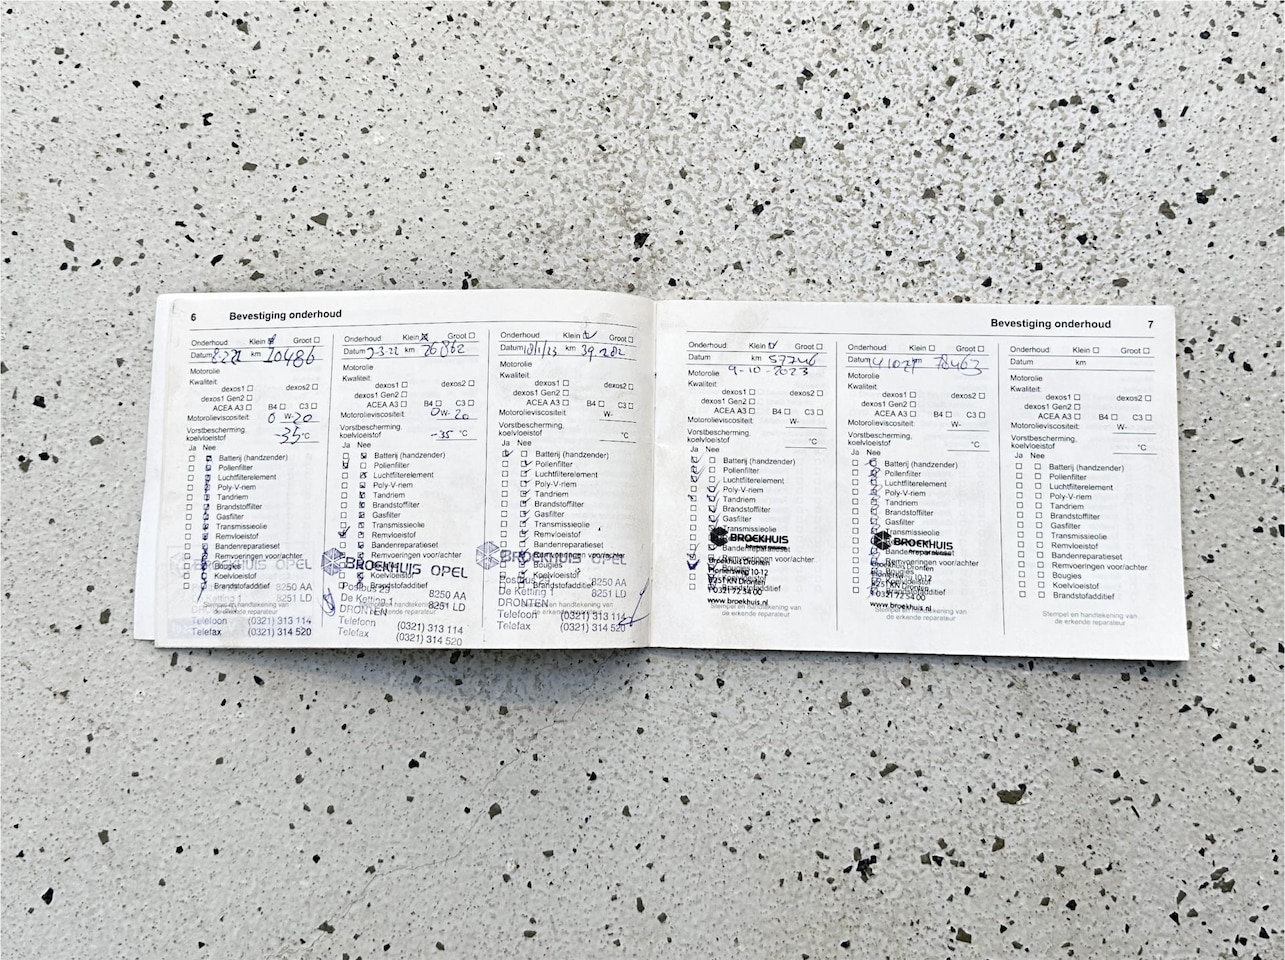 6 Bevestiging onderhoud
Onderhoud Klein Groot
Datum km 10486
Motorolie
Kwaliteit:
dexos1 dexos2
dexos1 Gen2
ACEA A3 B4 C3
Motorolieviscositeit: 0 W-20
Vorstbescherming,
koelvloeistof -35 °C
Ja Nee
Batterij (handzender)
Pollenfilter
Luchtfilterelement
Poly-V-riem
Tandriem
Brandstoffilter
Gasfilter
Transmissieolie
Remvloeistof
Bandenreparatieset
Remvoeringen voor/achter
Bougies
Koelvloeistof
Brandstofadditief
8250 AA
8251 LD
Stempel en handtekening van
de erkende reparateur
Telefoon (0321) 313 114
Telefax (0321) 314 520
Onderhoud Klein Groot
Datum km 26862
Motorolie
Kwaliteit:
dexos1 dexos2
dexos1 Gen2
ACEA A3 B4 C3
Motorolieviscositeit: 0W-20
Vorstbescherming,
koelvloeistof -35 °C
Ja Nee
Batterij (handzender)
Pollenfilter
Luchtfilterelement
Poly-V-riem
Tandriem
Brandstoffilter
Gasfilter
Transmissieolie
Remvloeistof
Bandenreparatieset
Remvoeringen voor/achter
BROEKHUIS OPEL
Koelvloeistof
Brandstofadditief
Postbus 8250 AA
De Ketting 1 8251 LD
DRONTEN
Telefoon (0321) 313 114
Telefax (0321) 314 520
Onderhoud Klein Groot
Datum 18/1/23 km 39.282
Motorolie
Kwaliteit:
dexos1 dexos2
dexos1 Gen2
ACEA A3 B4 C3
Motorolieviscositeit: W-
Vorstbescherming,
koelvloeistof °C
Ja Nee
Batterij (handzender)
Pollenfilter
Luchtfilterelement
Poly-V-riem
Tandriem
Brandstoffilter
Gasfilter
Transmissieolie
Remvloeistof
Bandenreparatieset
Remvoeringen voor/achter
BROEKHUIS OPEL
Koelvloeistof
Brandstofadditief
8250 AA
De Ketting 1 8251 LD
DRONTEN
Telefoon (0321) 313 114
Telefax (0321) 314 520
Bevestiging onderhoud 7
Onderhoud Klein Groot
Datum km 57746
Motorolie 9-10-2023
Kwaliteit:
dexos1 dexos2
dexos1 Gen2
ACEA A3 B4 C3
Motorolieviscositeit: W-
Vorstbescherming,
koelvloeistof °C
Ja Nee
Batterij (handzender)
Pollenfilter
Luchtfilterelement
Poly-V-riem
Tandriem
Brandstoffilter
Gasfilter
Transmissieolie
BROEKHUIS
Bandenreparatieset
Remvoeringen voor/achter
Broekhuis Dronten
10-12
8251 KN Dronten
T 0321 72 54 00
www.broekhuis.nl
Stempel en handtekening van
de erkende reparateur
Onderhoud Klein Groot
Datum km 78463
Motorolie
Kwaliteit:
dexos1 dexos2
dexos1 Gen2
ACEA A3 B4 C3
Motorolieviscositeit: W-
Vorstbescherming,
koelvloeistof °C
Ja Nee
Batterij (handzender)
Pollenfilter
Luchtfilterelement
Poly-V-riem
Tandriem
Brandstoffilter
Gasfilter
Transmissieolie
BROEKHUIS
Bandenreparatieset
Remvoeringen voor/achter
Broekhuis Dronten
10-12
8251 KN Dronten
T 0321 72 54 00
www.broekhuis.nl
Stempel en handtekening van
de erkende reparateur
Onderhoud Klein Groot
Datum km
Motorolie
Kwaliteit:
dexos1 dexos2
dexos1 Gen2
ACEA A3 B4 C3
Motorolieviscositeit: W-
Vorstbescherming,
koelvloeistof °C
Ja Nee
Batterij (handzender)
Pollenfilter
Luchtfilterelement
Poly-V-riem
Tandriem
Brandstoffilter
Gasfilter
Transmissieolie
Remvloeistof
Bandenreparatieset
Remvoeringen voor/achter
Bougies
Koelvloeistof
Brandstofadditief
Stempel en handtekening van
de erkende reparateur